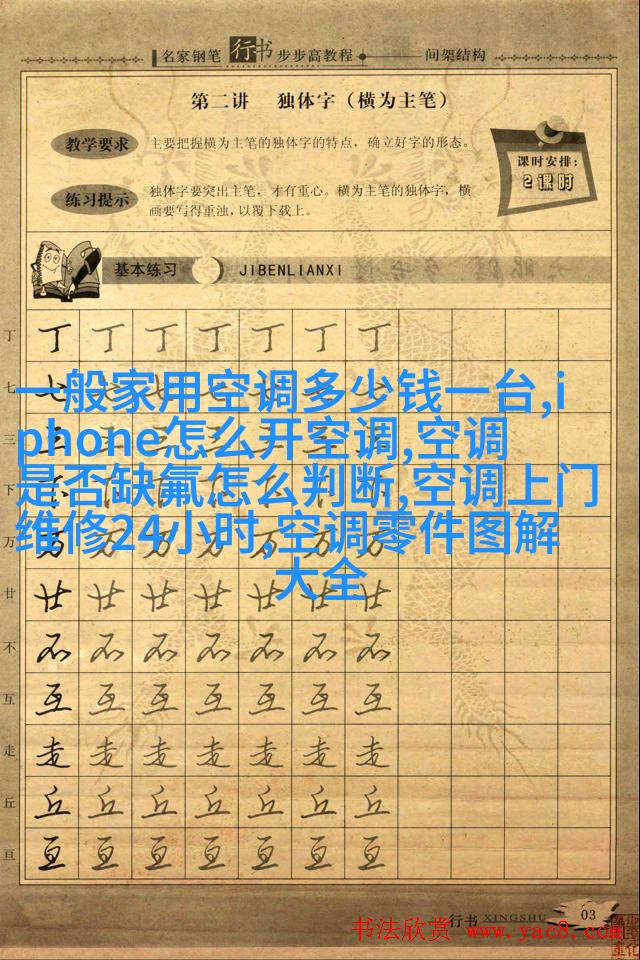 名家钢笔 行书 步步高教程 间架结构
第二讲 独体字（横为主笔）
教学要求 主要把握横为主笔的独体字的特点，确立好字的形态。
课时安排：
2课时
练习提示 独体字要突出主笔，才有重心。横为主笔的独体字，横
画要写得重浊，以覆下载上。
基本练习 JIBENLIANXI
丁 丁 丁 丁 丁 丁 丁 丁
一般家用空调多少钱一台,i
phone怎么开空调,空调
是否缺氟怎么判断,空调上门
维修24小时,空调零件图解
大全
七
三
下
万
廿 廿 廿 廿 廿 廿 廿 廿
不 不 不 不 不 不 不 不
互 互 互 互 互 互 互 互
走 走 走 走 走 走 走 走
丘 丘 丘 丘 丘 丘 丘 丘
亘 亘 亘 亘 亘 亘 亘 亘
行书 XINGSHU 03
书法欣赏 www.yac8.com